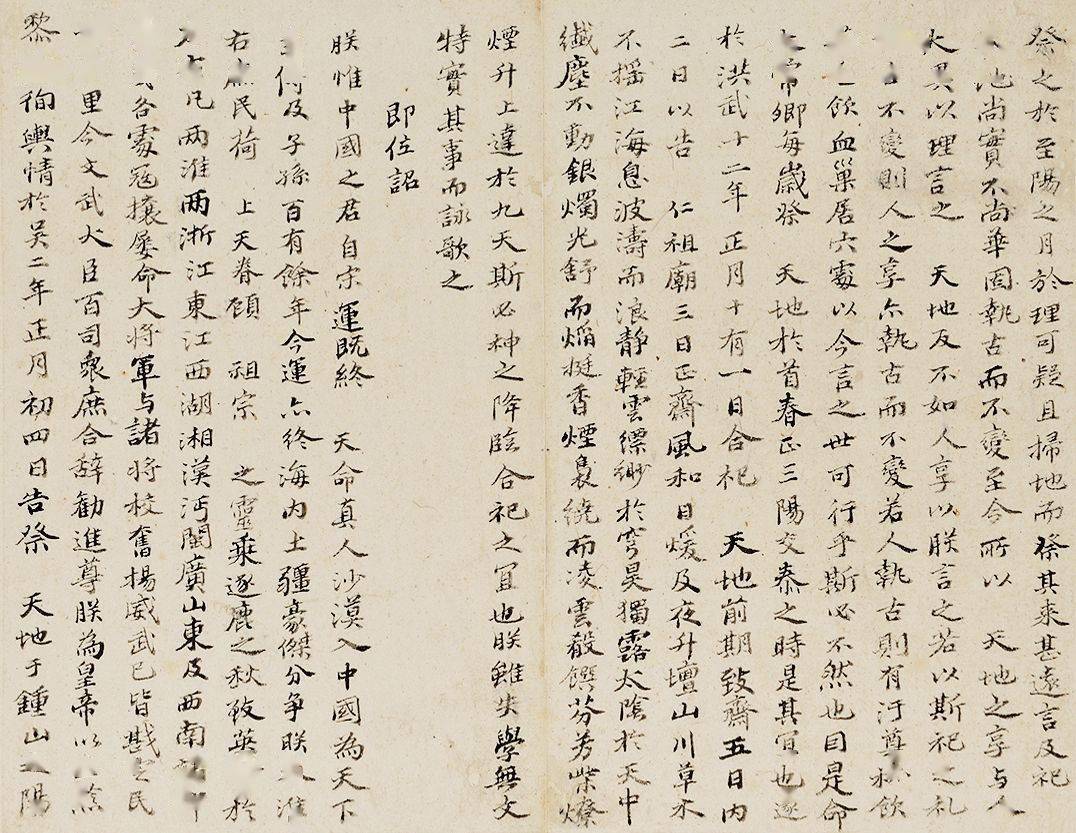 祭之於至陽之月於理可疑且掃地而祭其来甚遠言及祀
地尚實不尚華固執古而不變至今所以 天地之享與人
大異以理言之 天地反不如人享以朕言之若以斯祀之礼
不變則人之享亦執古而不變若人執古則有汙尊 飲
飲血巢居穴處以今言之世可行乎斯必不然也因是命
常卿每歲祭 天地於首春正三陽交泰之時是其宜也遂
於洪武十二年正月十有一日合祀 天地前期致齋五日内
二日以告 仁祖廟三日正齋風和日煖及夜升壇山川草木
不摇江海息波濤而浪静輕雲縹緲於穹昊獨露太陰於天中
纎塵不動銀燭光舒而焰挺香煙裊繞而凌雲殽饌芬芳柴燎
煙升上達於九天斯必神之降臨合祀之宜也朕雖失學無文
特實其事而詠歌之
即位詔
朕惟中國之君自宋運既終 天命真人沙漠入中國為天下
及子孫百有餘年今運亦終海内土疆豪傑分争朕 淮
右庶民荷 上天眷顧 祖宗 之靈乗逐鹿之秋致英 於
凡兩淮兩浙江東江西湖湘漢沔閩廣山東及西南
各處冦攘屡命大将軍与諸将校奮揚威武已皆戡 民
里今文武大臣百司衆庶合辞勸進尊朕為皇帝以
黎 徇輿情於吴二年正月初四日告祭 天地于鍾山之陽